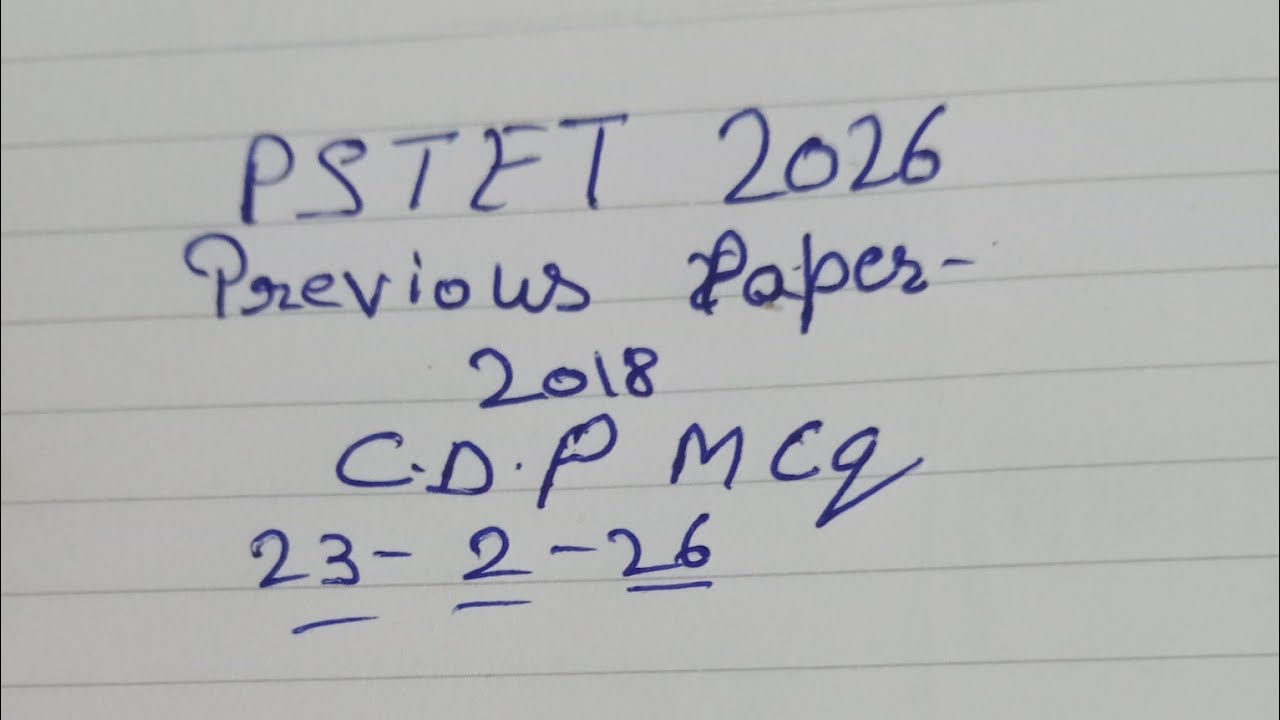 PSTET 2026
Previous Paper-
2018
C.D.P MCQ
23-2-26